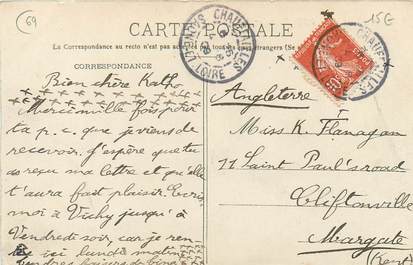 69
15€
CARTE POSTALE
La Correspondance au recto n'est pas acceptée par tous les pays étrangers (Se
CORRESPONDANCE
CHAUFFAILLES
Bien chère Kath
Merci mille fois pour
ta p.c. que je viens de
recevoir. J'espère que tu
as reçu ma lettre et qu'elle
t'aura fait plaisir. Ecris
moi à Vichy jusqu'à
Vendredi soir, car je ren
ici lundi matin
baisers de
Angleterre
Miss K. Flanagan
11 Saint Paul's road
Cliftonville
Margate
(Kent)